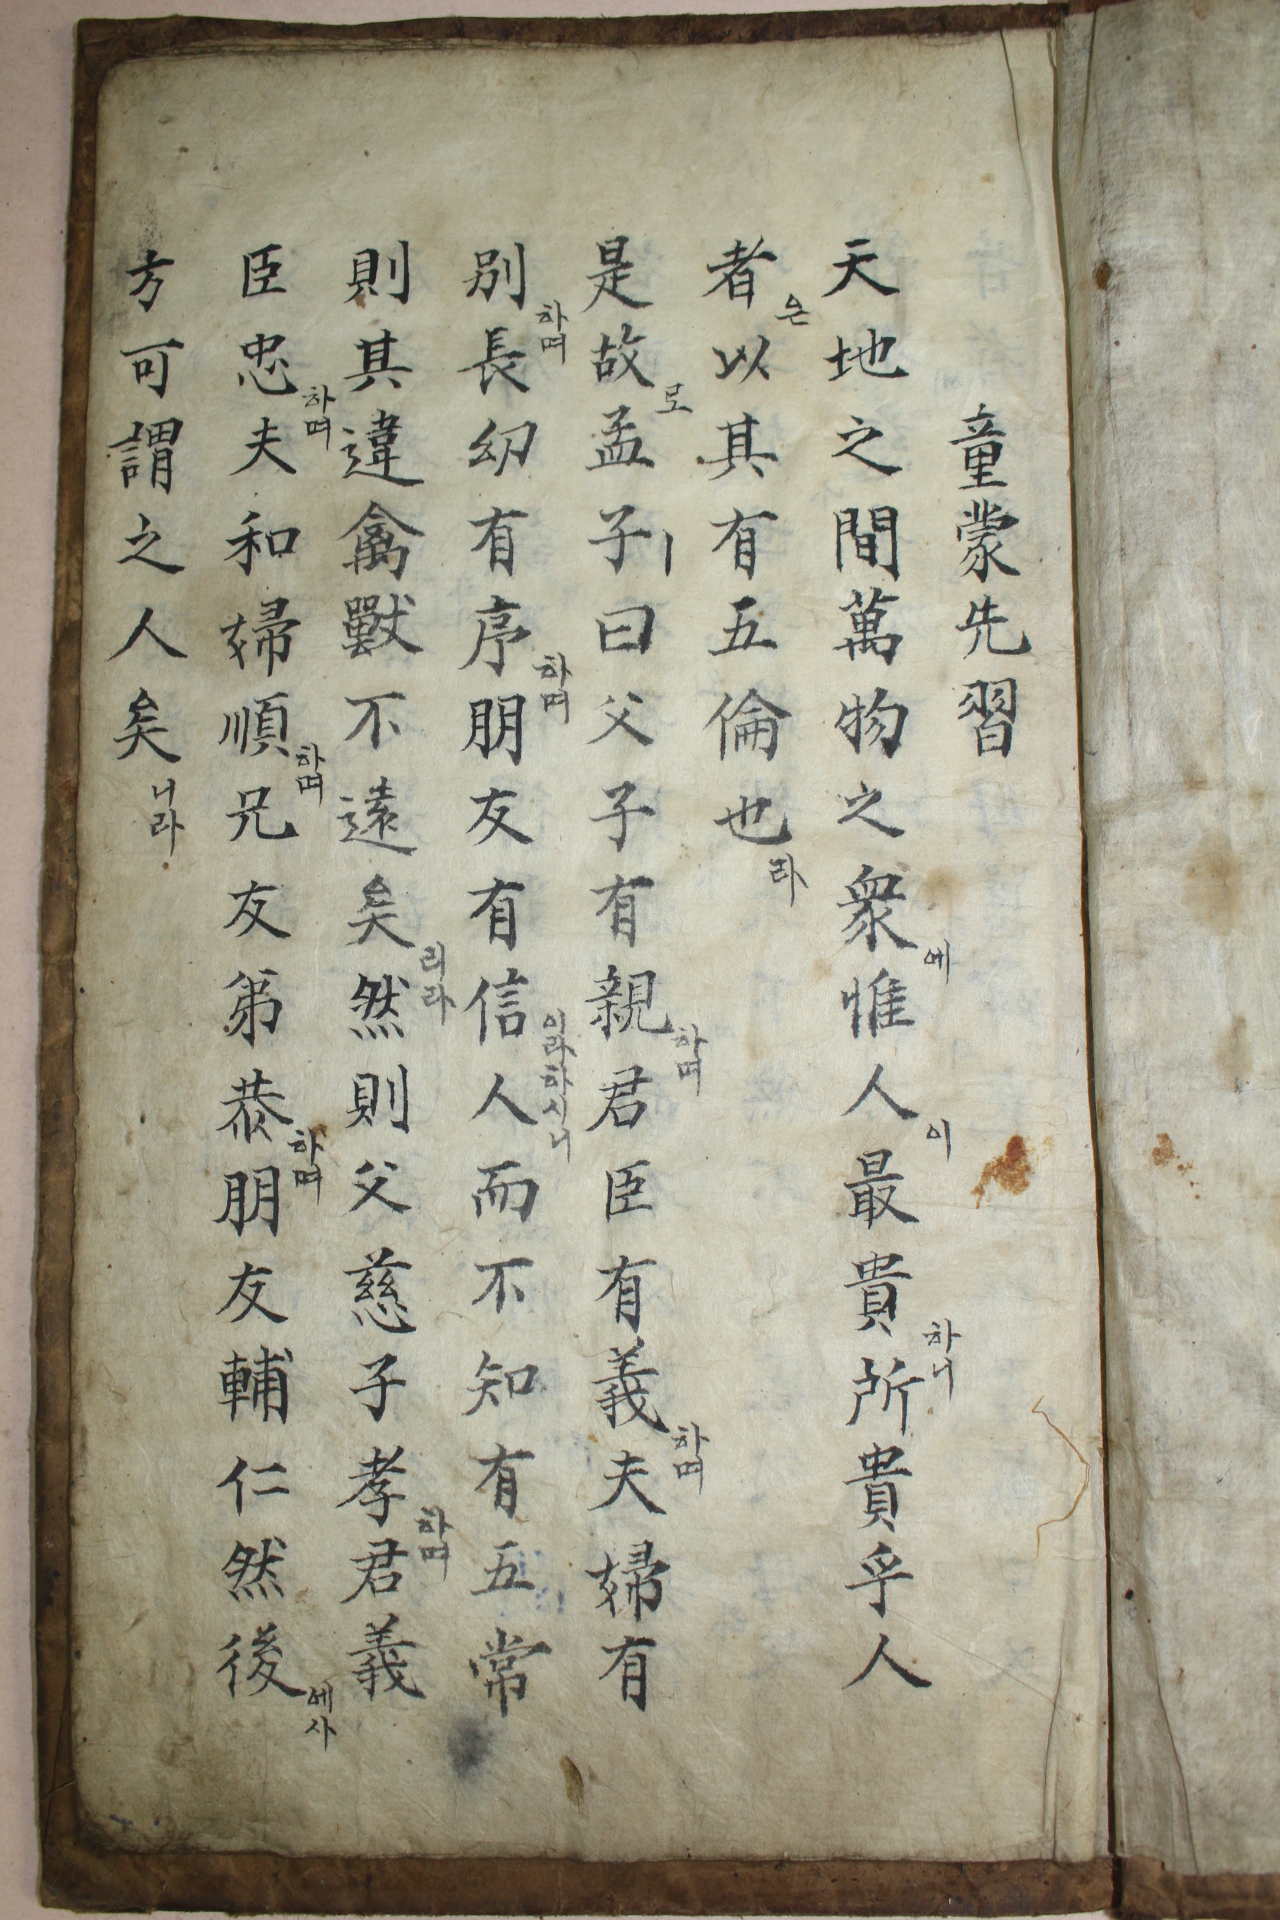 童蒙先習
天地之間萬物之衆에惟人이最貴하니所貴乎人
者은以其有五倫也라
是故로孟子ㅣ曰父子有親하며君臣有義하며夫婦有
別하며長幼有序하며朋友有信이라하시니人而不知有五常
則其違禽獸不遠矣리라然則父慈子孝하며君義
臣忠하며夫和婦順하며兄友弟恭하며朋友輔仁然後에사
方可謂之人矣니라